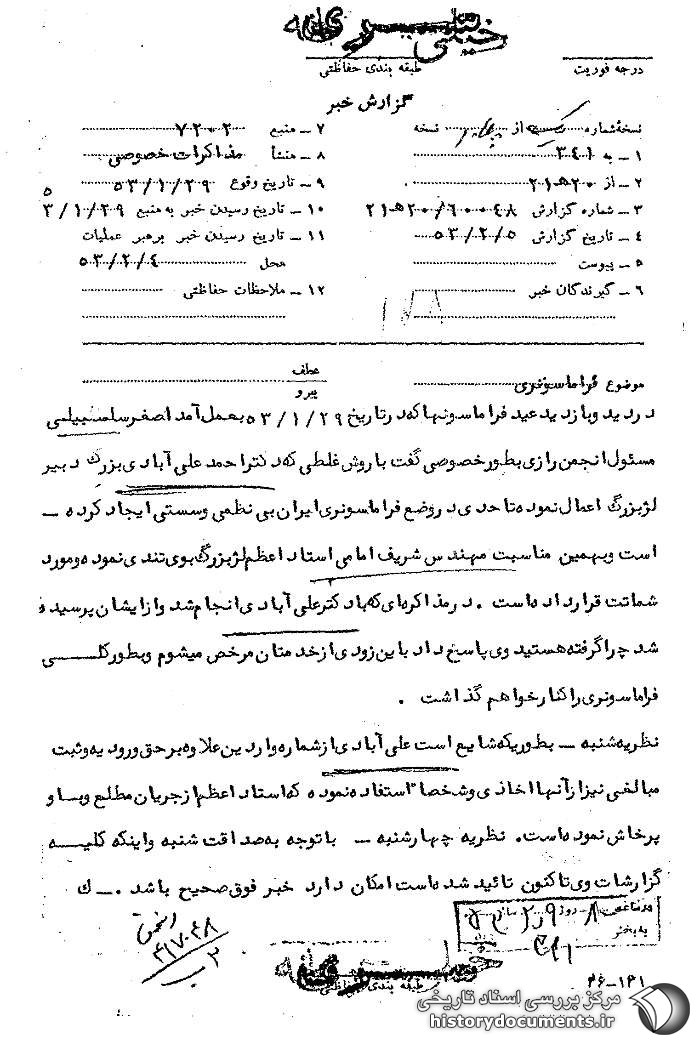 طبقه بندی حفاظتی
درجه فوریت
گزارش خبر
نسخهٔ شماره یک از چهار نسخه
۱ ـ به ۳٤۱
۲ ـ از ۲۰هـ۲۱
۳ ـ شماره گزارش ۶۰۰٤۸/۲۰هـ۲۱
٤ ـ تاریخ گزارش ۵۳/۲/۵
۵ ـ پیوست
۶ ـ گیرندگان خبر
۷ ـ منبع ۷۲۰۲
۸ ـ منشأ مذاکرات خصوصی
۹ ـ تاریخ وقوع ۵۳/۱/۲۹
۱۰ ـ تاریخ رسیدن خبر به منبع ۵۳/۱/۲۹
۱۱ ـ تاریخ رسیدن خبر برهبر عملیات
محل ۵۳/۲/٤
۱۲ ـ ملاحظات حفاظتی
۱۷۸
موضوع فراماسونری
عطف
پیرو
در دید و بازدید عید فراماسونها که در تاریخ ۵۳/۱/۲۹ بعمل آمد اصغر سلسبیلی
مسئول انجمن رازی بطور خصوصی گفت با روش غلطی که دکتر احمد علی آبادی بزرگ دبیر
لژ بزرگ اعمال نموده تا حدی در وضع فراماسونری ایران بی نظمی و سستی ایجاد کرده ـ
است و بهمین مناسبت مهندس شریف امامی استاد اعظم لژ بزرگ بوی تندی نموده و مورد
شماتت قرار داده است . در مذاکره ای که با دکتر علی آبادی انجام شد و از ایشان پرسیده
شد چرا گرفته هستید وی پاسخ داد باین زودی از خدمتان مرخص میشوم و بطور کلی
فراماسونری را کنار خواهم گذاشت .
نظریه شنبه ـ بطوریکه شایع است علی آبادی از شماره واردین علاوه بر حق ورودیه و ثبت
مبالغی نیز از آنها اخاذی و شخصا" استفاده نموده که استاد اعظم از جریان مطلع و بسا و
پرخاش نموده است. نظریه چهارشنبه ـ با توجه به صداقت شنبه و اینکه کلیه
گزارشات وی تاکنون تائید شده است امکان دارد خبر فوق صحیح باشد . ـ ک
در ساعت ۸ روز ۹ ر ۲
به بخش
۳۱۷۰٤۸
طبقه بندی حفاظتی
۳۶-۱۳۱
مرکز بررسی اسناد تاریخی
historydocuments.ir